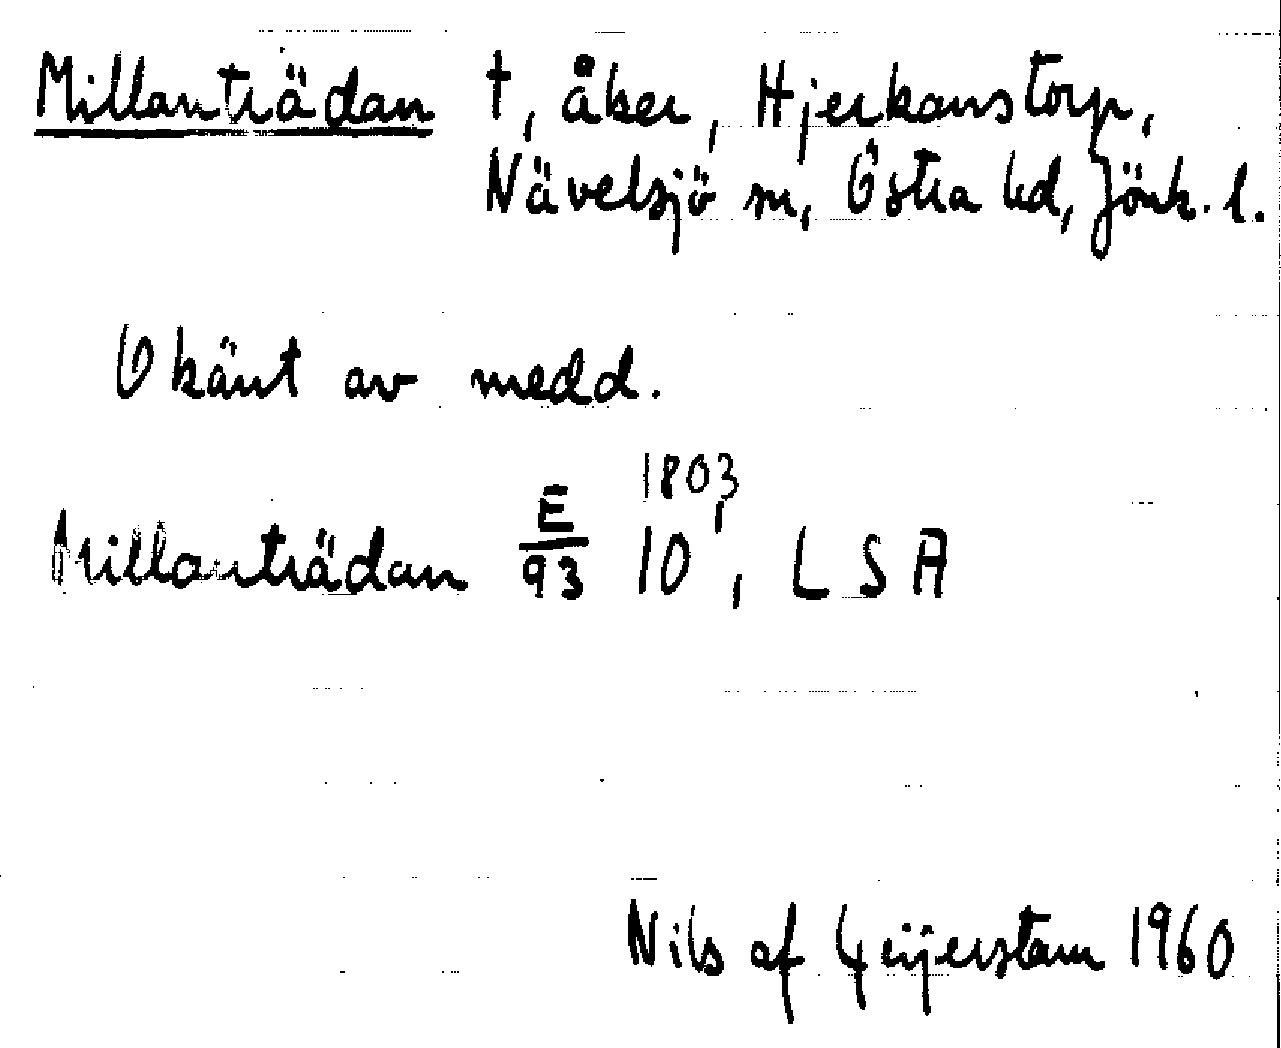 Millanträdan †, åker, Hjerkanstorp,
Nävelsjö sn, Östra hd, Jönk. l.
Okänt av medd.
Millanträdan E/93 10, 1803, LSA
Nils af Geijerstam 1960